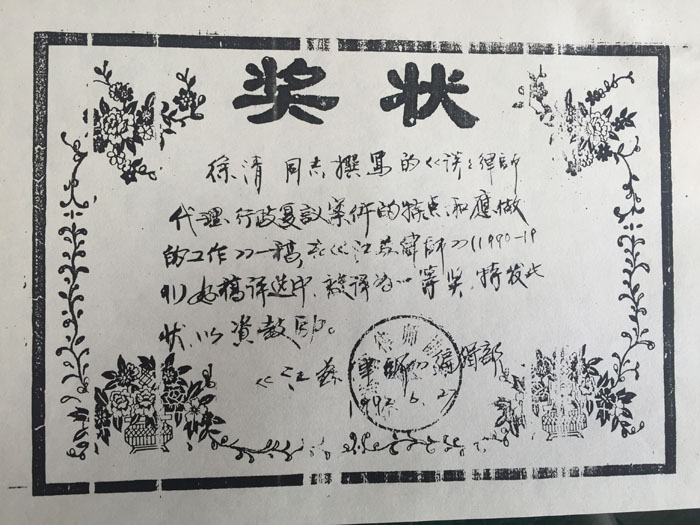 奖状
徐清同志撰写的《谈谈律师
代理行政复议案件的特点和应做
的工作》一稿,在《江苏律师》(1990-19
91)好稿评选中,被评为一等奖,特发此
状,以资鼓励。
《江苏律师》编辑部